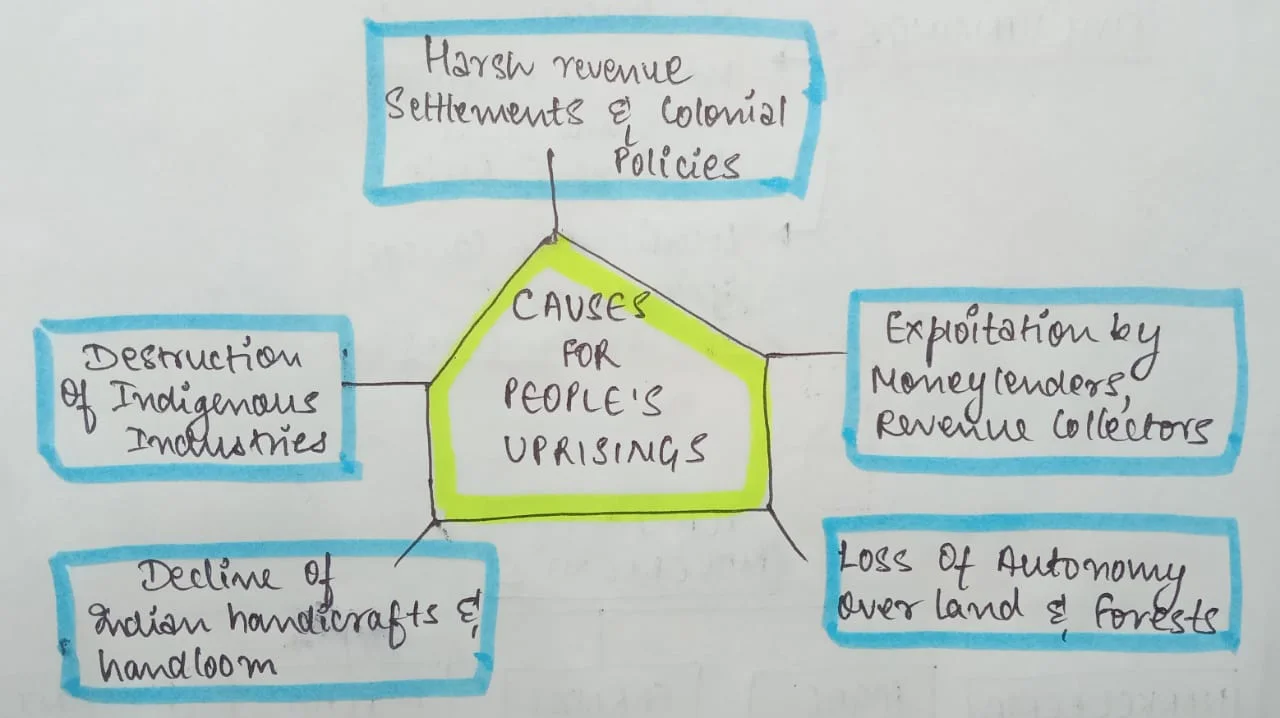 Harsh revenue
Settlements & Colonial
Policies
CAUSES
FOR
PEOPLE'S
UPRISINGS
Exploitation by
Moneylenders,
Revenue Collectors
Destruction
Of Indigenous
Industries
Loss Of Autonomy
Over land & forests
Decline Of
Indian handicrafts &
handloom